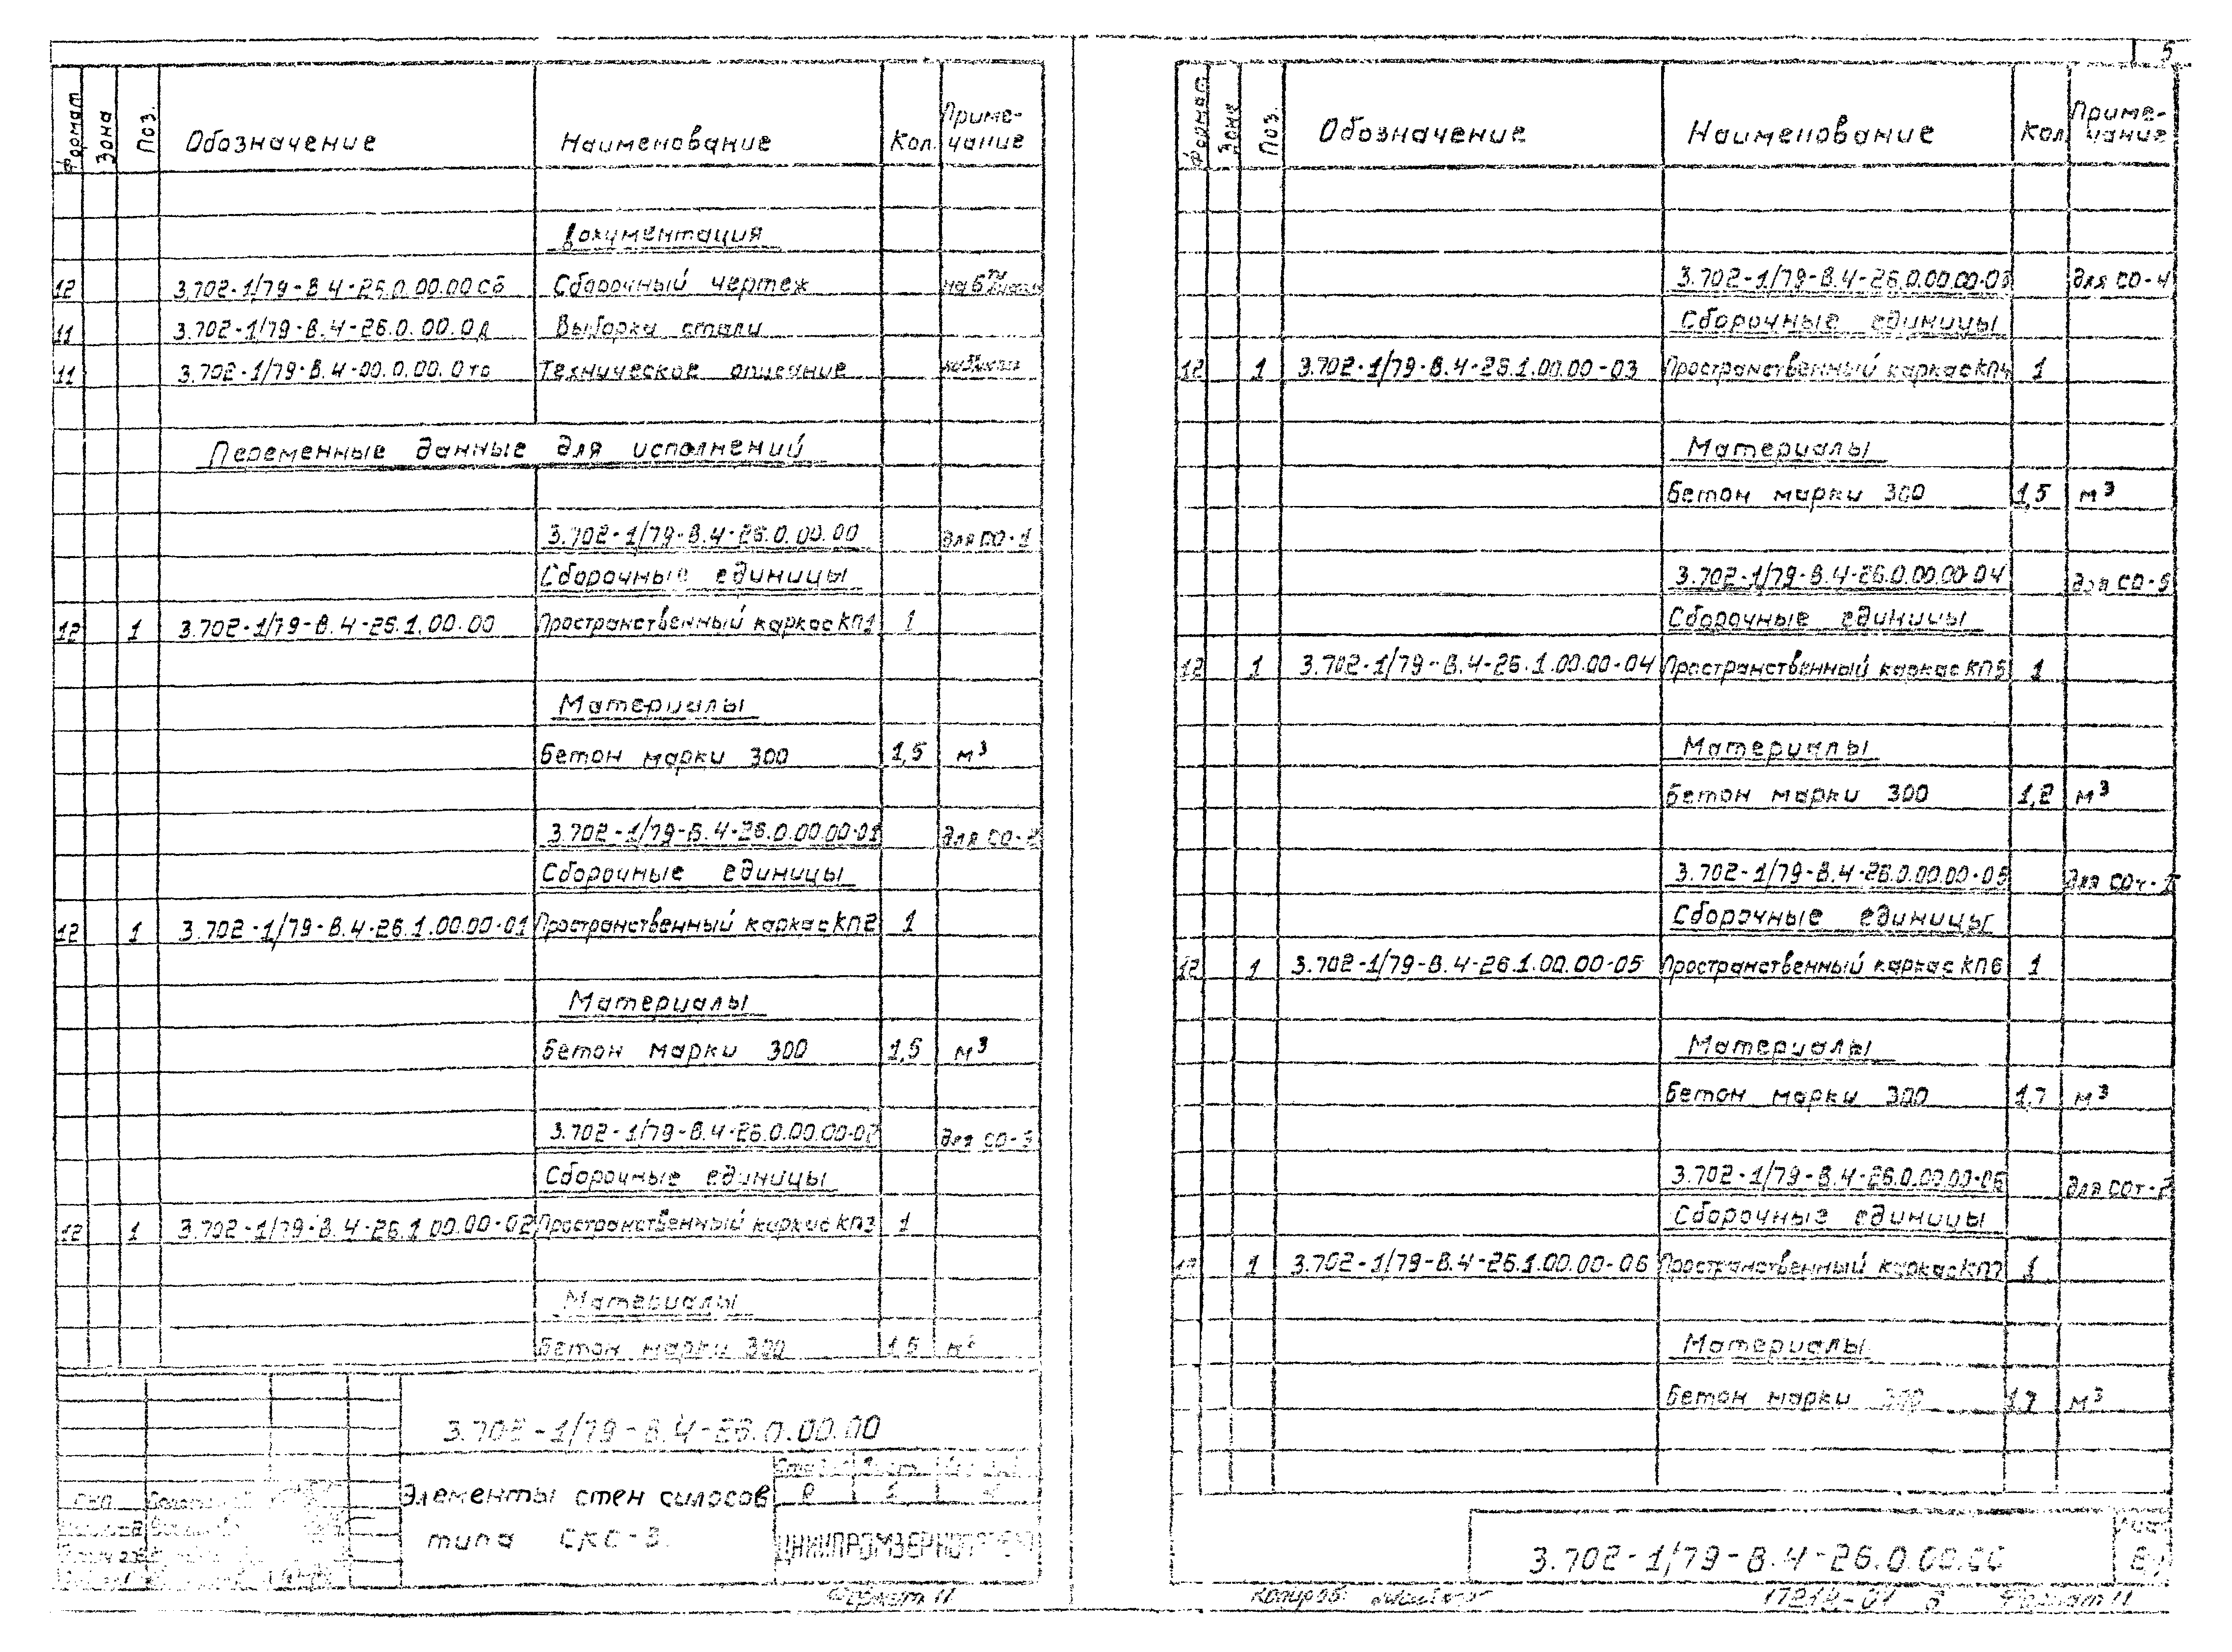 5
Формат Зона Поз. Обозначение Наименование Кол. Приме-
чание
Документация
12 3.702-1/79-В.4-26.0.00.00сб Сборочный чертеж
11 3.702-1/79-В.4-26.0.00.0д Выборка стали
11 3.702-1/79-В.4-00.0.00.0то Техническое описание
Переменные данные для исполнений
3.702-1/79-В.4-26.0.00.00 для СО-1
Сборочные единицы
12 1 3.702-1/79-В.4-26.1.00.00 Пространственный каркас КП1 1
Материалы
Бетон марки 300 1,5 м³
3.702-1/79-В.4-26.0.00.00-01 для СО-2
Сборочные единицы
12 1 3.702-1/79-В.4-26.1.00.00-01 Пространственный каркас КП2 1
Материалы
Бетон марки 300 1,5 м³
3.702-1/79-В.4-26.0.00.00-02 для СО-3
Сборочные единицы
12 1 3.702-1/79-В.4-26.1.00.00-02 Пространственный каркас КП3 1
Материалы
Бетон марки 300 1,5 м³
3.702-1/79-В.4-26.0.00.00
Элементы стен силосов
типа СКС-3.
Р 1
ЦНИИПРОМЗЕРНОПРОЕКТ
Формат 11
Формат Зона Поз. Обозначение Наименование Кол. Приме-
чание
3.702-1/79-В.4-26.0.00.00-03 для СО-4
Сборочные единицы
12 1 3.702-1/79-В.4-26.1.00.00-03 Пространственный каркас КП4 1
Материалы
Бетон марки 300 1,5 м³
3.702-1/79-В.4-26.0.00.00-04 для СО-5
Сборочные единицы
12 1 3.702-1/79-В.4-26.1.00.00-04 Пространственный каркас КП5 1
Материалы
Бетон марки 300 1,2 м³
3.702-1/79-В.4-26.0.00.00-05 для СОт-1
Сборочные единицы
12 1 3.702-1/79-В.4-26.1.00.00-05 Пространственный каркас КП6 1
Материалы
Бетон марки 300 1,7 м³
3.702-1/79-В.4-26.0.00.00-06 для СОт-2
Сборочные единицы
12 1 3.702-1/79-В.4-26.1.00.00-06 Пространственный каркас КП7 1
Материалы
Бетон марки 300 1,7 м³
3.702-1/79-В.4-26.0.00.00 Лист
Копиров. 17212-01 Формат 11